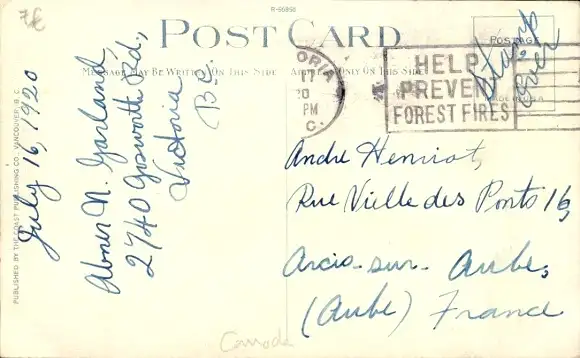 7€
R-55858
POST CARD
MESSAGE MAY BE WRITTEN ON THIS SIDE
ADDRESS ONLY ON THIS SIDE
POSTAGE
Stamp
over
HELP
PREVENT
FOREST FIRES
PM
C.
PUBLISHED BY THE COAST PUBLISHING CO., VANCOUVER, B.C.
July 16, 1920
Abner N. Garland,
2740 Gosworth Rd.,
Victoria
B.C.
Andre Henriot,
Rue Vielle des Ponts 16,
Arcis-sur-Aube,
(Aube) France
Canada